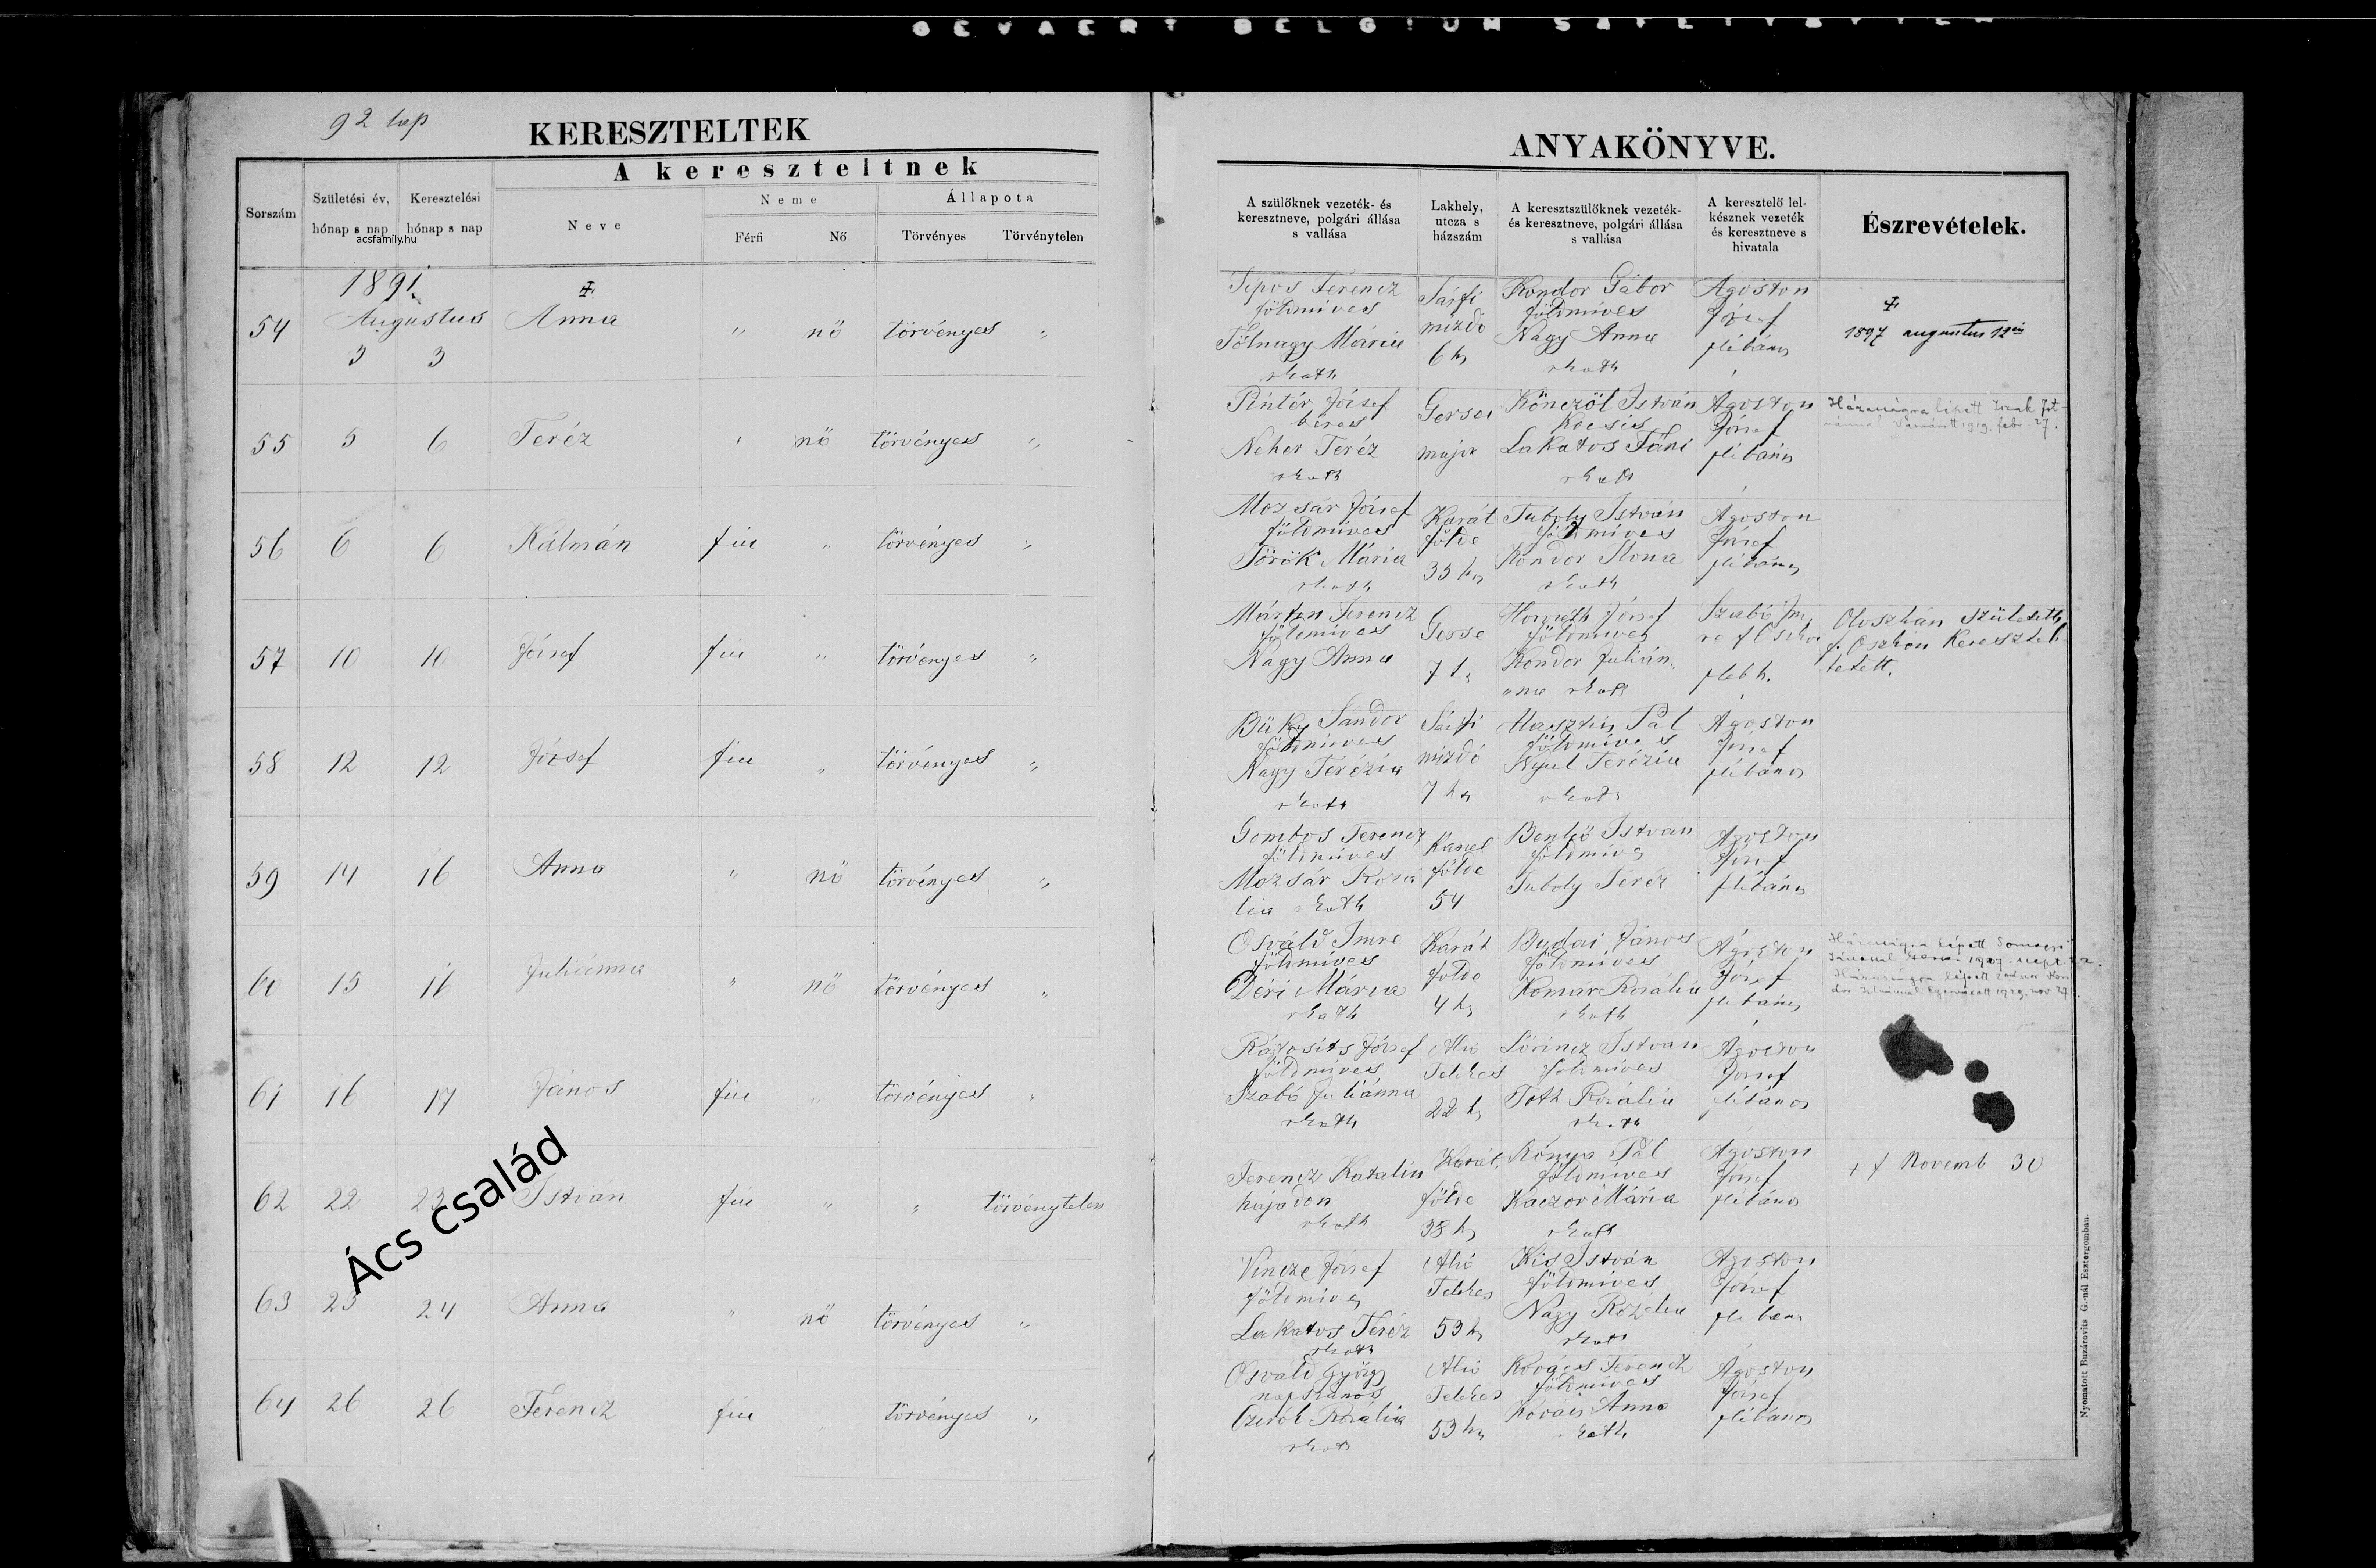 GEVAERT BELGIUM SAFETY
92 lap
KERESZTELTEK
ANYAKÖNYVE.
A kereszteltnek
Sorszám
Születési év, hónap s nap
Keresztelési hónap s nap
acsfamily.hu
Neve
Neme
Férfi
Nő
Állapota
Törvényes
Törvénytelen
A szülőknek vezeték- és keresztneve, polgári állása s vallása
Lakhely, utcza s házszám
A keresztszülőknek vezeték- és keresztneve, polgári állása s vallása
A keresztelő lelkésznek vezeték és keresztneve s hivatala
Észrevételek.
1891.
54 Augustus 3 3 Anna " nő törvényes "
Sipos Ferencz földmives Tólnagy Mária rkath
Sárfi mizdó 6 hs
Kondor Gábor földmives Nagy Anna rkath
Ágoston József plébános
1897 augustus 12én
55 5 6 Teréz " nő törvényes "
Pintér József béres Neher Teréz rkath
Gersei major
Könczöl István Kocsis Lakatos Fáni rkath
Ágoston József plébános
Házasságra lépett 1919. feb. 27.
56 6 6 Kálmán fiu " törvényes "
Mozsár József földmives Török Mária rkath
Karát földe 33 hs
Tuboly István földmives Kondor Ilona rkath
Ágoston József plébános
57 10 10 József fiu " törvényes "
Márton Ferencz földmives Nagy Anna
Gerse 7 hs
Horváth József földmives Kondor Juliánna rkath
Szabó Imre plebh.
Oloszkán született, Oszkón kereszteltetett.
58 12 12 József fiu " törvényes "
Büky Sándor földmives Nagy Terézia rkath
Sárfi mizdó 7 hs
Pál földmives Nyul Terézia rkath
Ágoston József plébános
59 14 16 Anna " nő törvényes "
Gombos Ferencz földmives Mozsár Rozália rkath
földe 54
Benkő István földmives Tuboly Teréz
Ágoston József plébános
60 15 16 Juliánna " nő törvényes "
Osváld Imre földmives Déri Mária rkath
Karát földe 4 hs
Budai János földmives Komár Rozália rkath
Ágoston József plébános
Házasságra lépett
Házasságra lépett 1929. nov. 27.
61 16 17 János fiu " törvényes "
József földmives Szabó Juliánna rkath
Alsó Telekes 22 hs
Lörincz István földmives Tóth Rozália rkath
Ágoston József plébános
62 22 23 István fiu " " törvénytelen
Ferencz Katalin hajadon rkath
Karát földe 38 hs
Rónya Pál földmives Kaczor Mária rkath
Ágoston József plébános
+ f Novemb 30
63 23 24 Anna " nő törvényes "
Vincze József földmives Lakatos Teréz rkath
Alsó Telekes 53 hs
Kis István földmives Nagy Rozália rkath
Ágoston József plébános
64 26 26 Ferencz fiu törvényes "
Osvald György napszámos Rozália rkath
Alsó Telekes 53 hs
Kovács Ferencz földmives Kovács Anna rkath
Ágoston József plébános
Ács család
Nyomatott Buzárovits G.-nál Esztergomban.